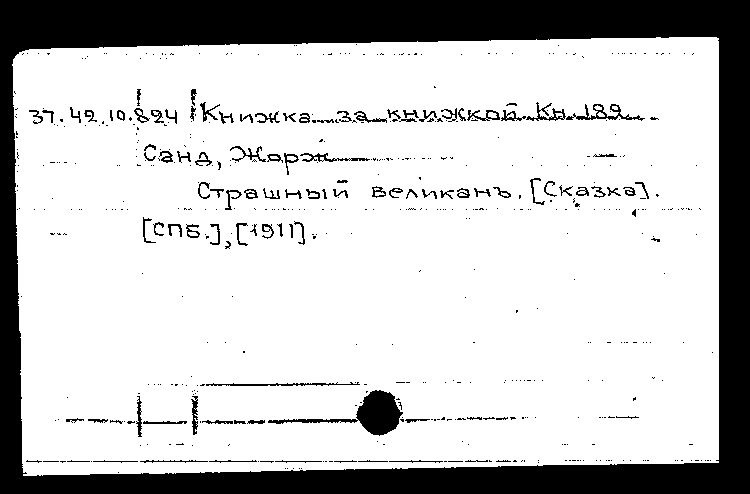 37.42.10.824 Книжка за книжкой Кн. 189.
Санд, Жорж
Страшный великанъ. [Сказка].
[СПБ.], [1911].